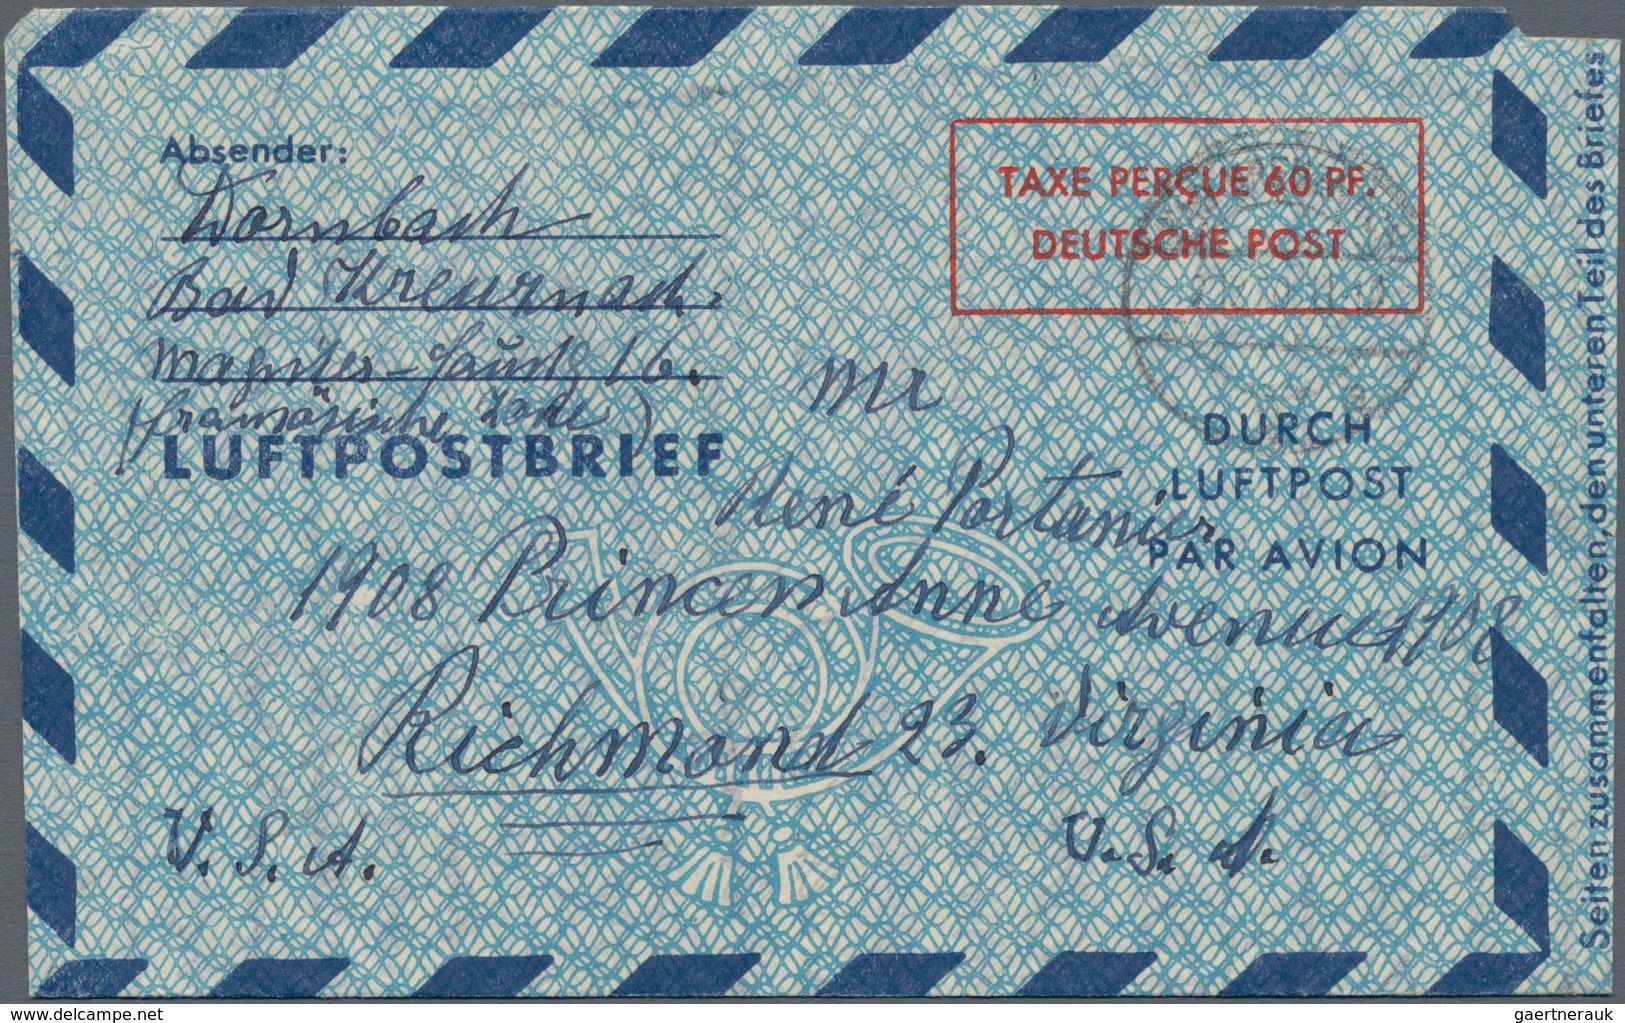 Absender:
Dornbach
Bad Kreuznach
16.
(französische Zone)
LUFTPOSTBRIEF
TAXE PERÇUE 60 PF.
DEUTSCHE POST
DURCH
LUFTPOST
PAR AVION
Mr
René Portanier
1908 Princess Anne Avenue 1908
Richmond 23. Virginia
U.S.A. U.S.A.
Seiten zusammenfalten, den unteren Teil des Briefes
hipstamp.com
gaertnerauk